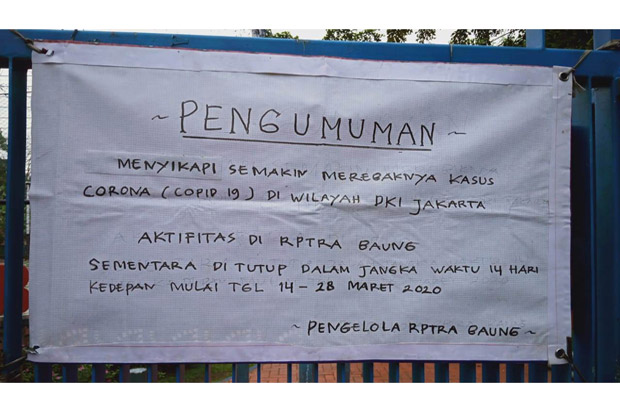 ~ PENGUMUMAN ~
MENYIKAPI SEMAKIN MEREBAKNYA KASUS
CORONA (COPID 19) DI WILAYAH DKI JAKARTA
AKTIFITAS DI RPTRA BAUNG
SEMENTARA DI TUTUP DALAM JANGKA WAKTU 14 HARI
KEDEPAN MULAI TGL 14 - 28 MARET 2020
~ PENGELOLA RPTRA BAUNG ~